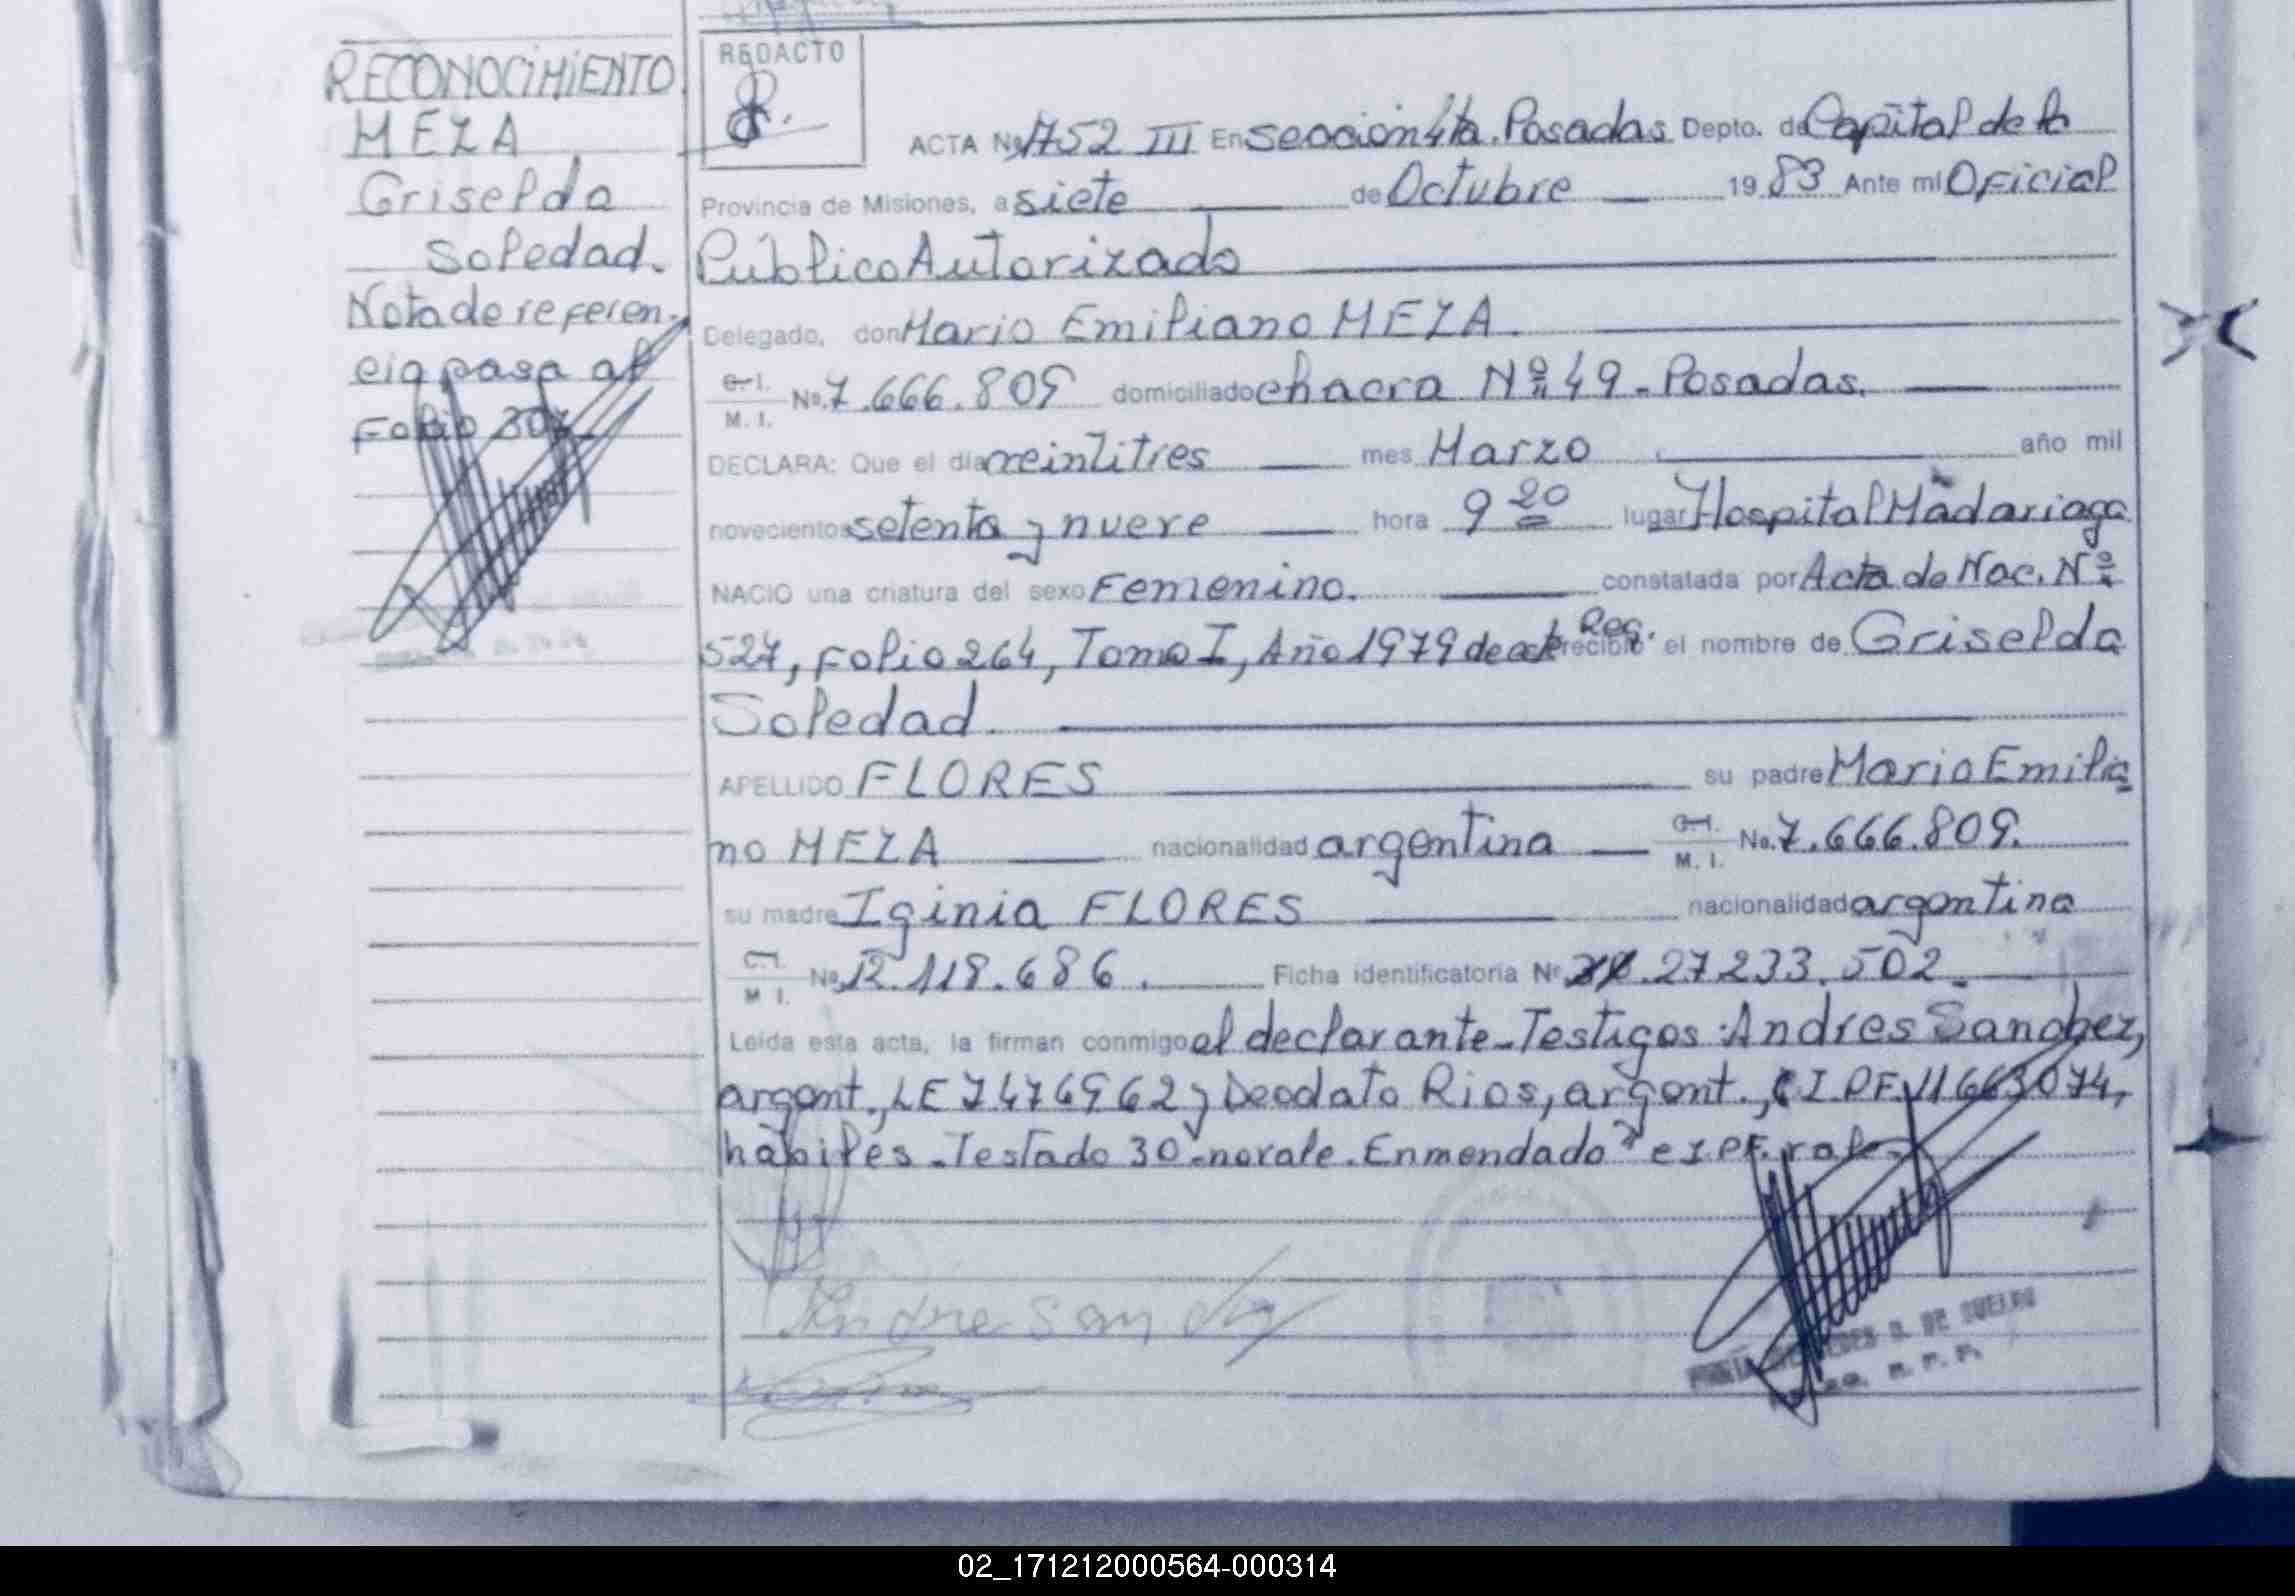 RECONOCIMIENTO
MEZA
Griselda
Soledad.
Nota de referen-
cia pasa al
Folio 307
REDACTO
ACTA No 1752 III En seccion 4ta. Posadas Depto. de Capital de la
Provincia de Misiones, a siete de Octubre 19 83 Ante mi Oficial
Público Autorizado
Delegado, don Mario Emiliano MEZA.
C. I. M. I. No. 7.666.809 domiciliado chacra Nº 49 - Posadas.
DECLARA: Que el día veintitres mes Marzo año mil
novecientos setenta y nueve hora 9 20 lugar Hospital Madariaga
NACIO una criatura del sexo Femenino. constatada por Acta de Nac. Nº
527, Folio 264, Tomo I, Año 1979 de este Reg. recibió el nombre de Griselda
Soledad
APELLIDO FLORES su padre Mario Emilia
no MEZA nacionalidad argentina C. I. M. I. No. 7.666.809.
su madre Iginia FLORES nacionalidad argentina
C. I. M. I. No. 12.118.686. Ficha identificatoria Nº 27233.502.
Leída esta acta, la firman conmigo el declarante - Testigos: Andres Sanchez,
argent., LE 7476962 y Deodato Rios, argent., CI.PF. 11663074,
habiles. Testado 30 - no vale. Enmendado " CI PF. vale
Andre Sanchez
DE CUELHO
02_171212000564-000314